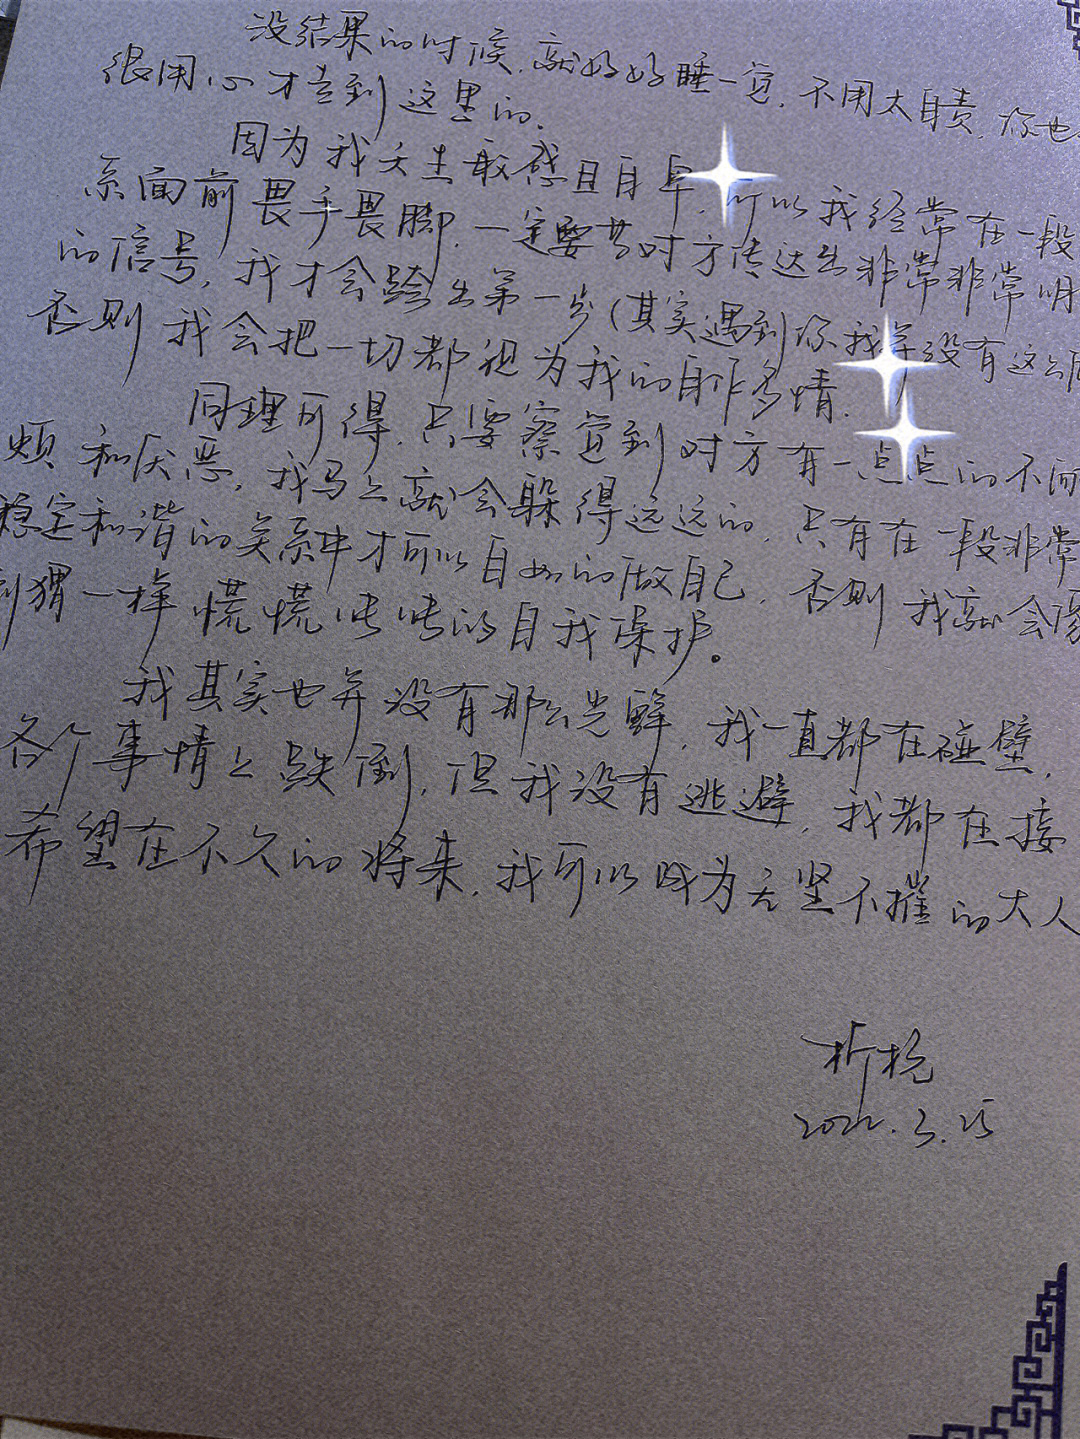 没结果的时候,就好好睡一觉,不用太自责,你也
很用心才走到这里的,
因为我天生敏感且自卑,所以我经常在一段
系面前畏手畏脚,一定要等对方传达出非常非常明
的信号,我才会跨出第一步(其实遇到你我并没有这么
否则我会把一切都视为我的自作多情.
同理可得,只要察觉到对方有一点点的不耐
烦和厌恶,我马上就会躲得远远的,只有在一段非常
稳定和谐的关系中才可以自如的做自己,否则我就会像
刺猬一样慌慌张张的自我保护。
我其实也并没有那么光鲜,我一直都在碰壁,
各个事情上跌倒,但我没有逃避,我都在接
希望在不久的将来,我可以成为无坚不摧的大人
2022.3.25